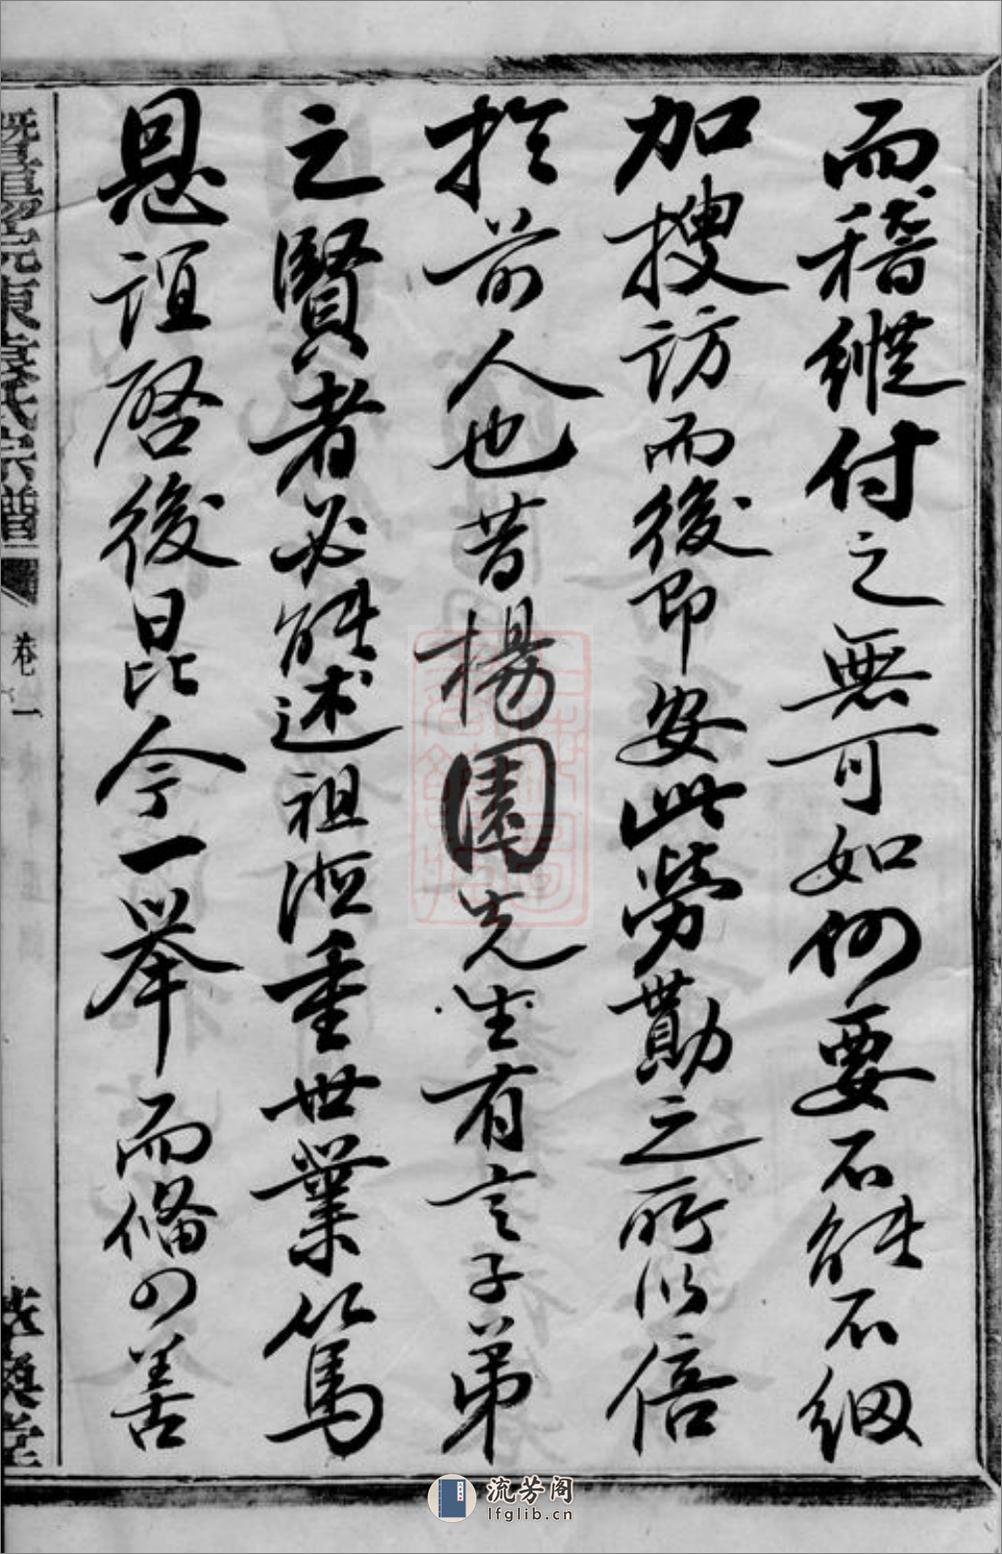 而稽縱付之無可如何要不能不細
加搜訪而後即安此勞勩之所以倍
於前人也昔楊園先生有言子弟
之賢者必能述祖德重世業以篤
恩誼啓後昆今一舉而備四善
東袁氏宗譜
卷一
堂
流芳阁
lfglib.cn